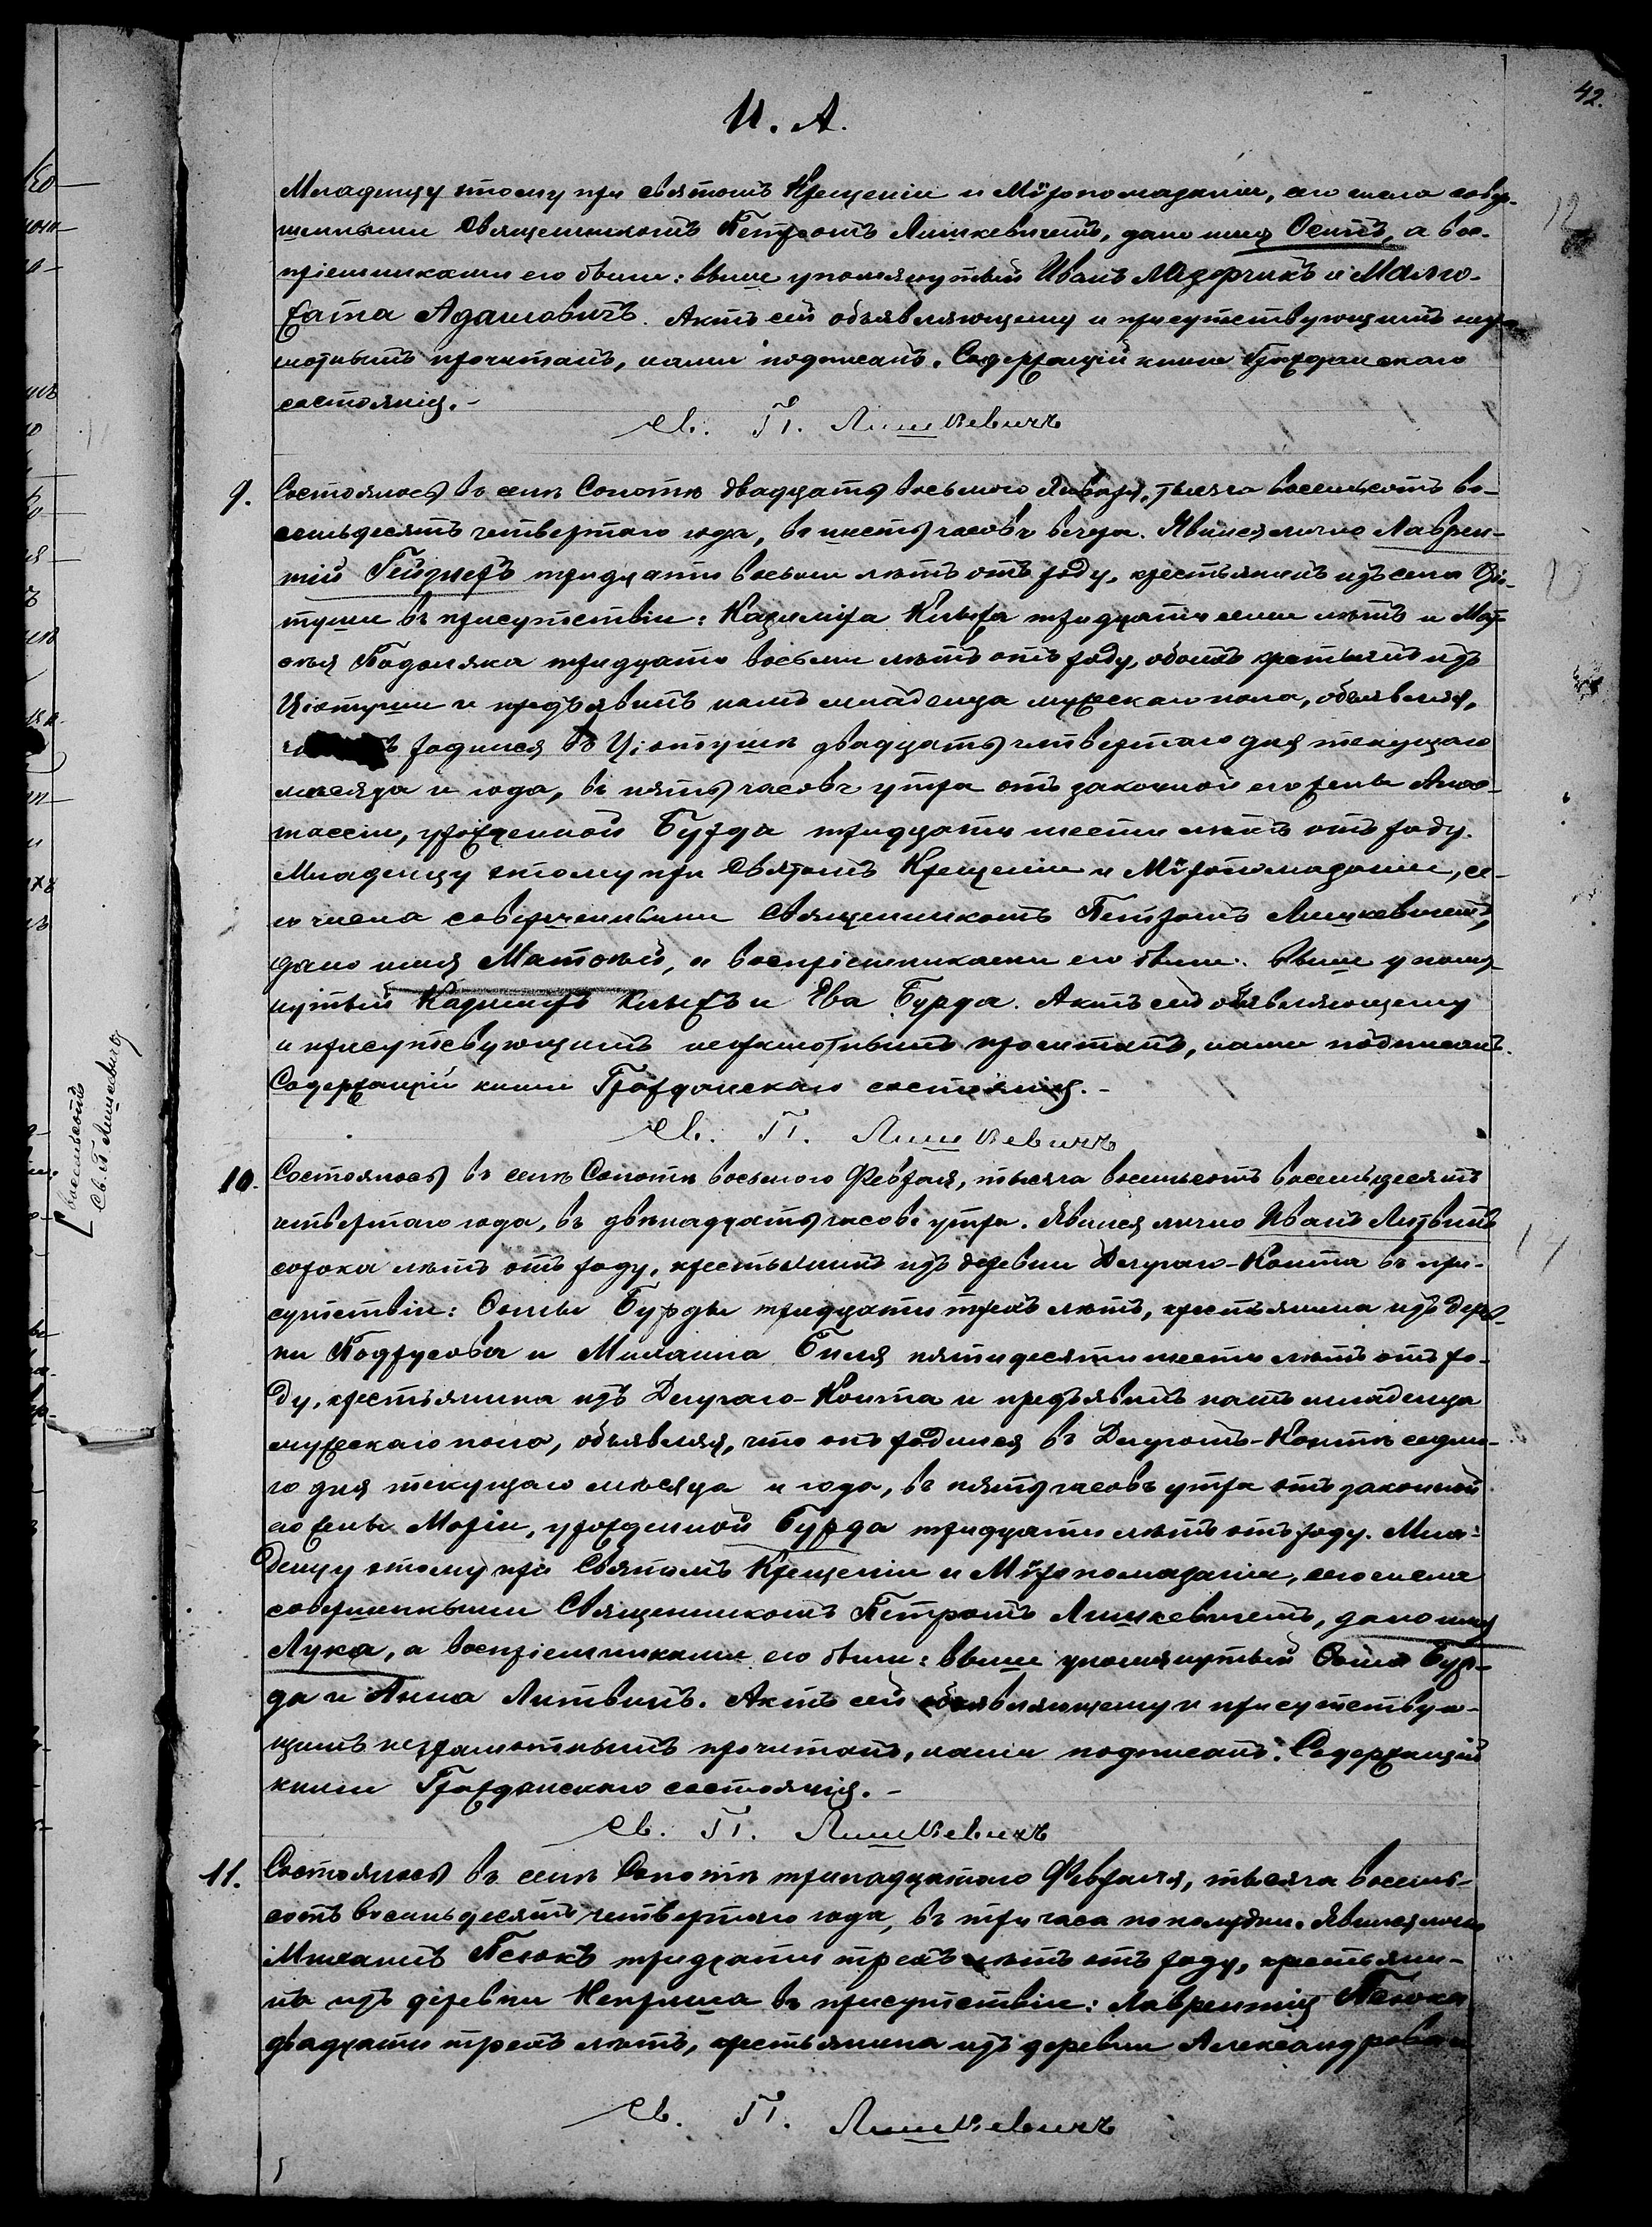 42.
И. А.
Младенцу этому при святомъ Крещеніи и Мѵропомазаніи, сего числа совер-
шенными Священникомъ Петромъ Лишкевичемъ, дано имя Осипъ, а вос-
пріемниками его были: выше упомянутый Иванъ и Малго-
жата Адамовичъ. Актъ сей объявляющему и присутствующимъ негра-
мотнымъ прочитанъ, нами подписанъ. Содержащій книги Гражданскаго
состоянія.-
Св. П. Лишкевичъ
9. Состоялось въ селѣ Сопотѣ двадцать восьмого Января, тысяча восемьсотъ во-
семьдесятъ четвертаго года, въ шесть часовъ вечера. Явился лично Лаврен-
тій тридцати восьми лѣтъ отъ роду, крестьянинъ изъ села Цѣ-
туши въ присутствіи: Казиміра тридцати семи лѣтъ и Мат-
ѳея Подоляка тридцати восьми лѣтъ отъ роду, обоихъ крестьянъ изъ
Цѣтуши и предъявилъ намъ младенца мужескаго пола, объявляя,
родился въ Цѣтушѣ двадцать четвертаго дня текущаго
мѣсяца и года, въ пять часовъ утра отъ законной его жены Анас-
тасіи, урожденной Бурда тридцати шести лѣтъ отъ роду.
Младенцу этому при Святомъ Крещеніи и Мѵропомазаніи, се-
го числа совершенными Священникомъ Петромъ Лишкевичемъ,
дано имя Матѳей, а воспріемниками его были: Выше упомя-
нутый Казиміръ и Ева Бурда. Актъ сей объявляющему
и присутсвующимъ неграмотнымъ прочитанъ, нами подписанъ.
Содержащій книги Гражданскаго состоянія.-
Св. П. Лишкевичъ
10. Состоялось въ селѣ Сопотѣ восьмого Февраля, тысяча восемьсотъ восемьдесятъ
четвертаго года, въ двѣнадцать часовъ утра. Явился лично Иванъ Литвинъ
сорока лѣтъ отъ роду, крестьянинъ изъ деревни Длугаго-Конта въ при-
сутствіи: Ѳомы Бурды тридцати трехъ лѣтъ, крестьянина изъ дерев-
ни Подрусова и Михаила Биля пятидесяти шести лѣтъ отъ ро-
ду, крестьянина изъ Длугаго-Конта и предъявилъ намъ младенца
мужескаго пола, объявляя, что онъ родился въ Длугомъ-Контѣ седьма-
го дня текущаго мѣсяца и года, въ пять часовъ утра отъ законной
его жены Маріи, урожденной Бурда тридцати лѣтъ отъ роду. Мла-
денцу этому при Святомъ Крещеніи и Мѵропомазаніи, сего числа
совершенными Священникомъ Петромъ Лишкевичемъ, дано имя
Лука, а воспріемниками его были: выше упомянутый Ѳома Бур-
да и Анна Литвинъ. Актъ сей объявляющему и присутствую-
щимъ неграмотнымъ прочитанъ, нами подписанъ. Содержащій
книги Гражданскаго состоянія.-
Св. П. Лишкевичъ
11. Состоялось въ селѣ Сопотѣ тринадцатаго Февраля, тысяча восемь-
сотъ восемьдесятъ четвертаго года, въ три часа пополудни. Явился лично
Михаилъ Псюкъ тридцати трехъ лѣтъ отъ роду, крестьяни-
нъ изъ деревни Неприша въ присутствіи: Лаврентія Псюка
двадцати трехъ лѣтъ, крестьянина изъ деревни Александрова и
Св. П. Лишкевичъ
восемьсотъ
Св. П. Лишкевичъ